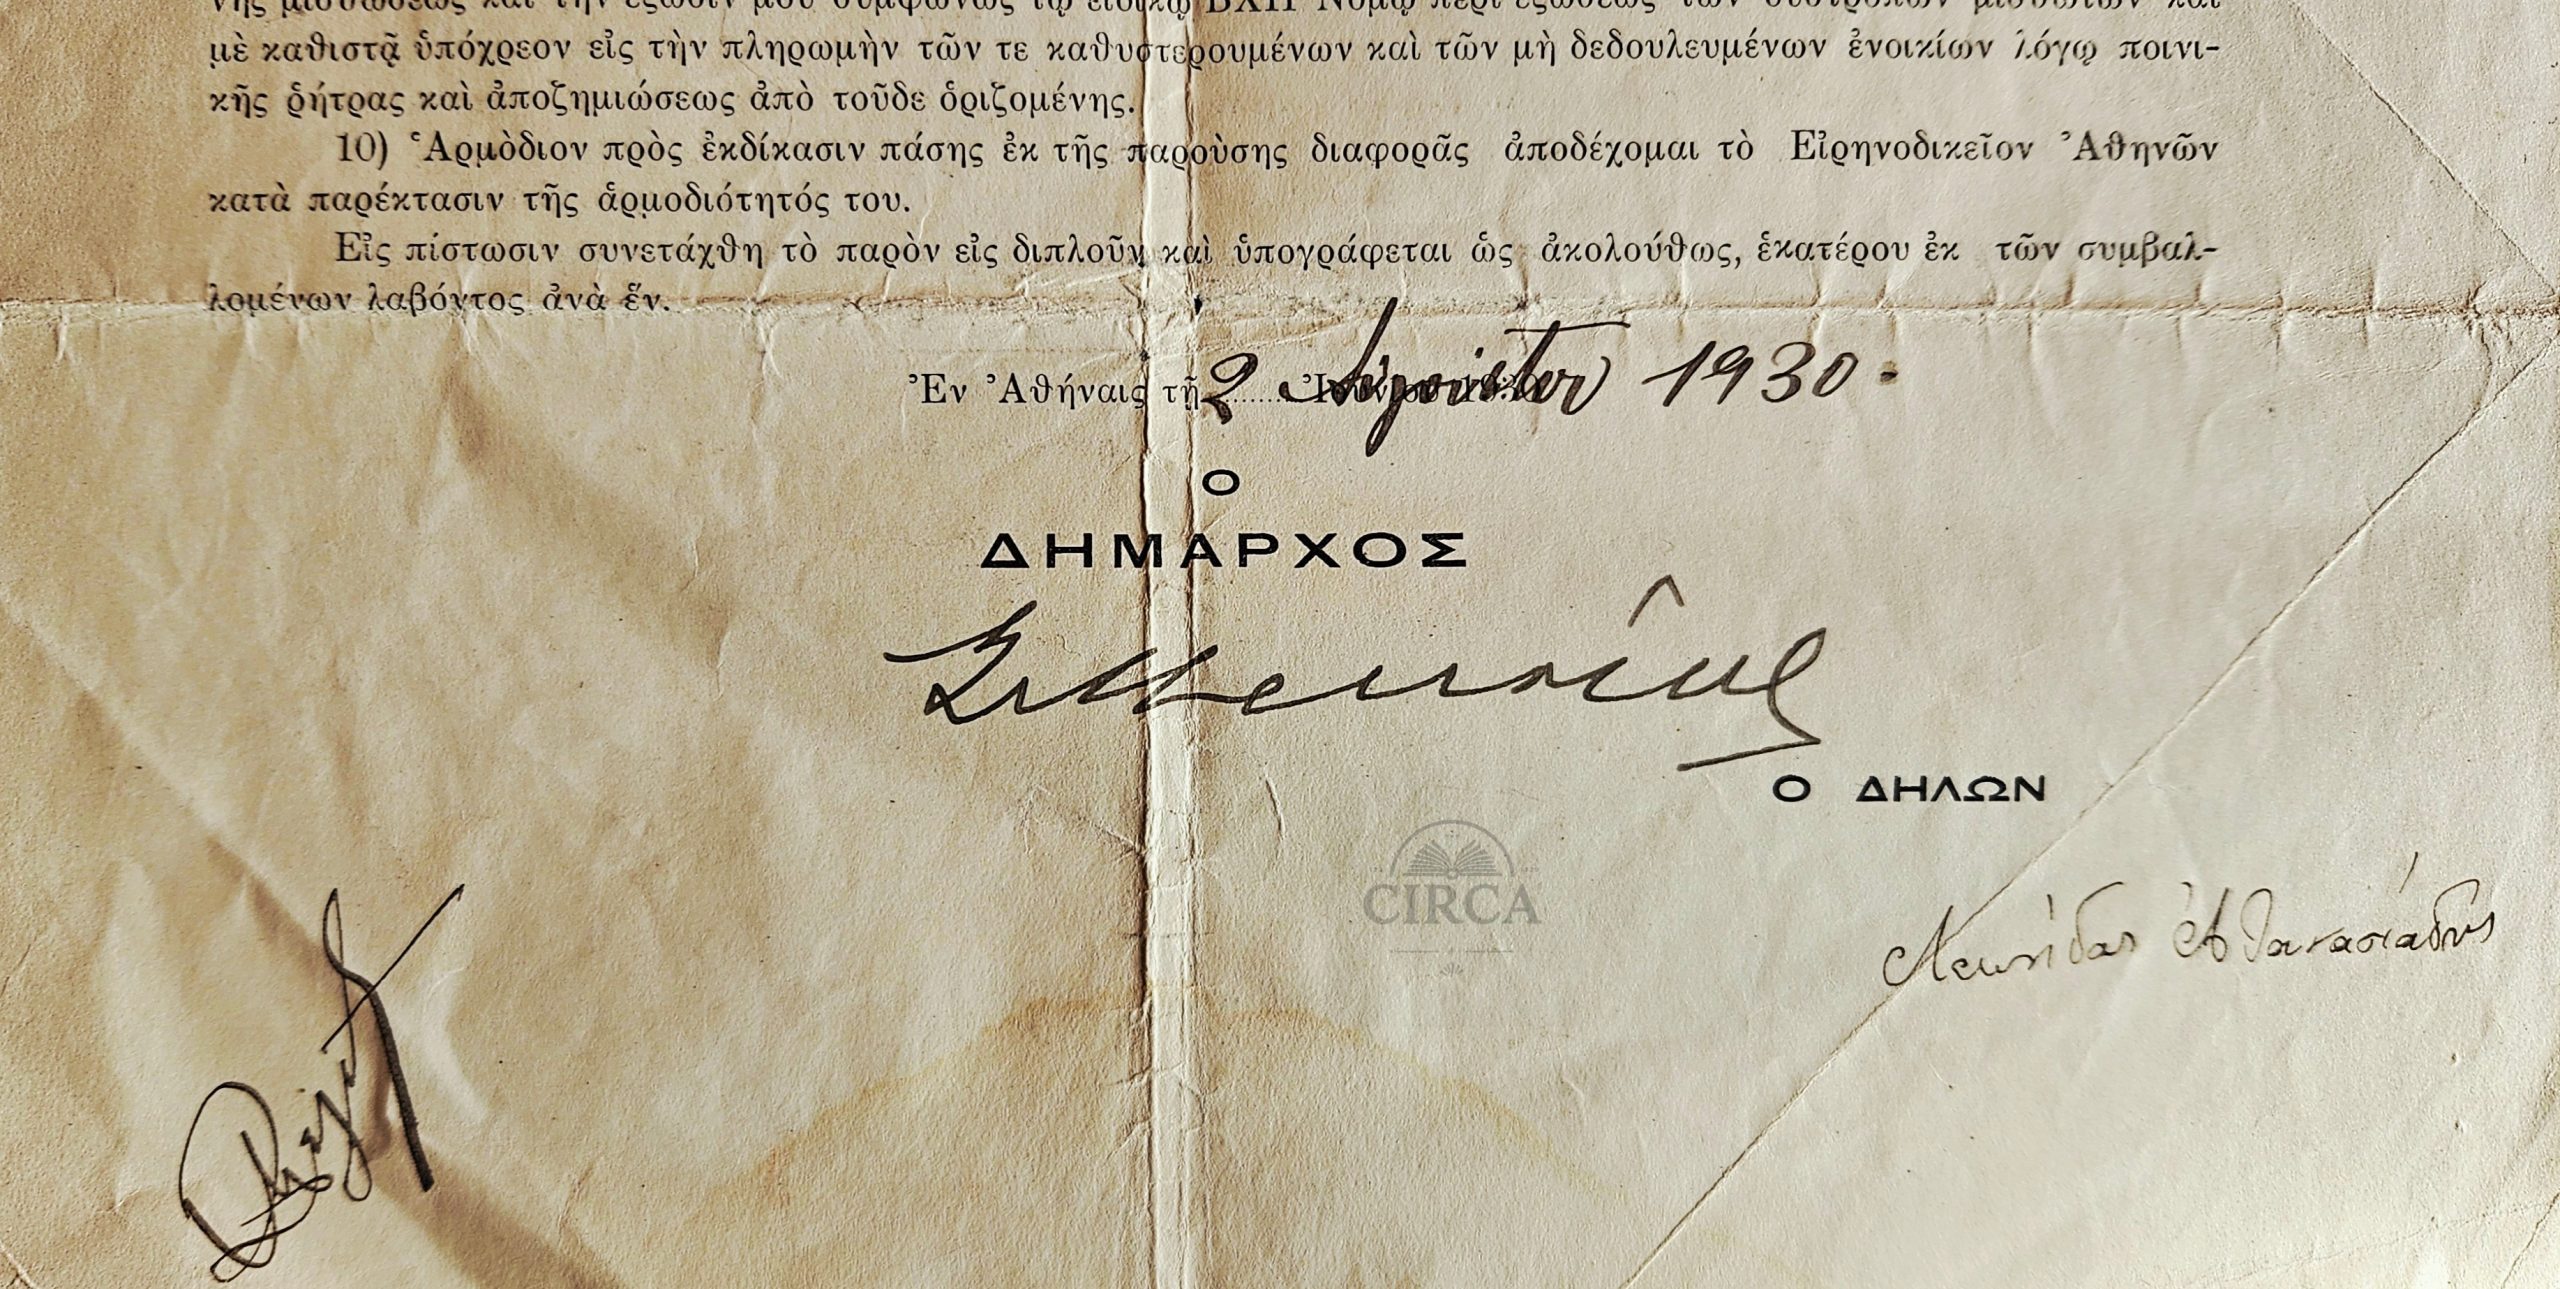 νης μισθώσεως καὶ τὴν ἔξωσίν μου συμφώνως τῷ εἰδικῷ ΒΧΗ΄ Νόμῳ περὶ ἐξώσεως τῶν δυστρόπων μισθωτῶν καὶ
μὲ καθιστᾷ ὑπόχρεον εἰς τὴν πληρωμὴν τῶν τε καθυστερουμένων καὶ τῶν μὴ δεδουλευμένων ἐνοικίων λόγῳ ποινι-
κῆς ῥήτρας καὶ ἀποζημιώσεως ἀπὸ τοῦδε ὁριζομένης.
10) Ἁρμὸδιον πρὸς ἐκδίκασιν πάσης ἐκ τῆς παροὺσης διαφορᾶς ἀποδέχομαι τὸ Εἰρηνοδικεῖον Ἀθηνῶν
κατὰ παρέκτασιν τῆς ἁρμοδιότητός του.
Εἰς πίστωσιν συνετάχθη τὸ παρὸν εἰς διπλοῦν καὶ ὑπογράφεται ὡς ἀκολούθως, ἑκατέρου ἐκ τῶν συμβαλ-
λομένων λαβόντος ἀνὰ ἕν.
Ἐν Ἀθήναις τῇ 2 Αὐγούστου 1930.
Ο
ΔΗΜΑΡΧΟΣ
Ο ΔΗΛΩΝ
CIRCA
Λεωνίδας Ἀθανασιάδης